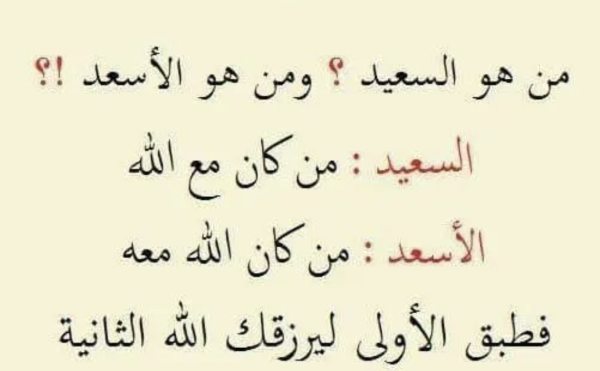 من هو السعيد ؟ ومن هو الأسعد !؟
السعيد : من كان مع الله
الأسعد : من كان الله معه
فطبق الأولى ليرزقك الله الثانية